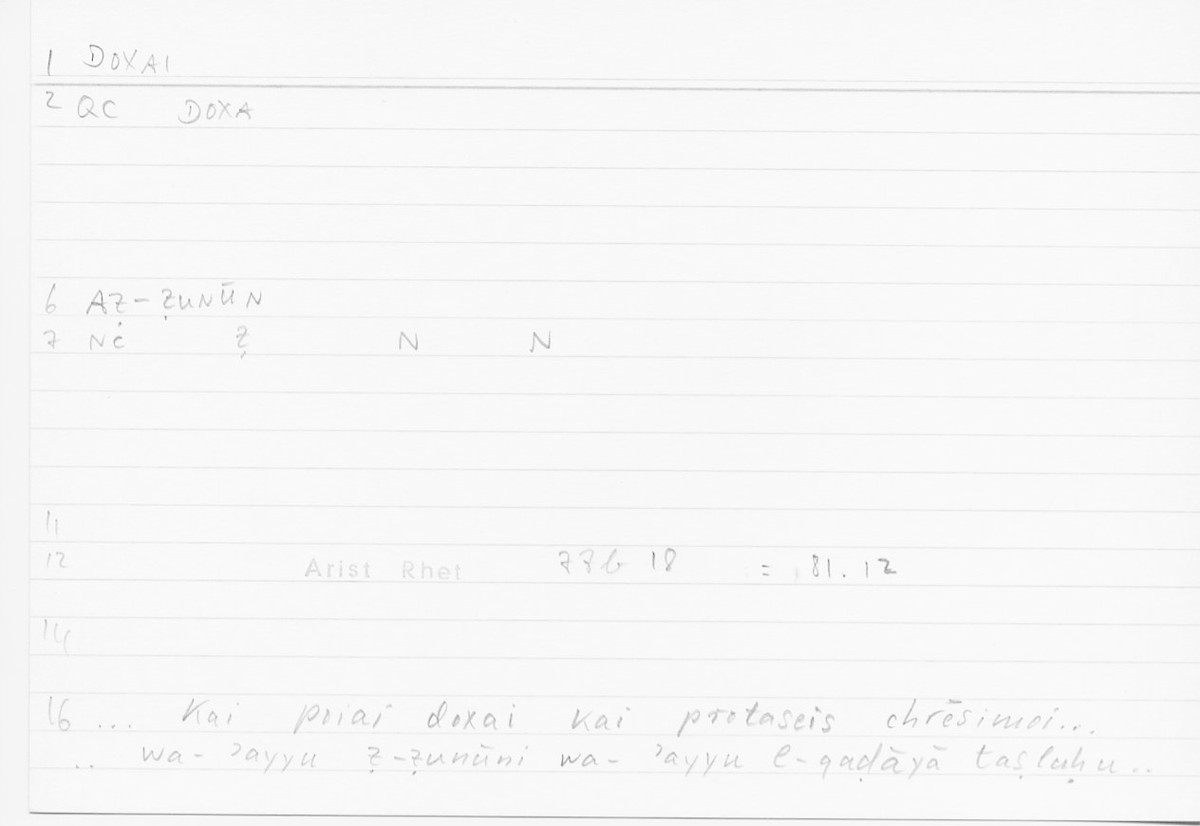 1 DOXAI
2 QC DOXA
6 AẒ-ẒUNŪN
7 Nc Ẓ N N
11
12 Arist Rhet 77b 18 = 81.12
14
16 ... Kai poiai doxai kai protaseis chrēsimoi...
.. wa- ʾayyu ẓ-ẓunūni wa- ʾayyu l-qaḍāyā taṣluḥu..